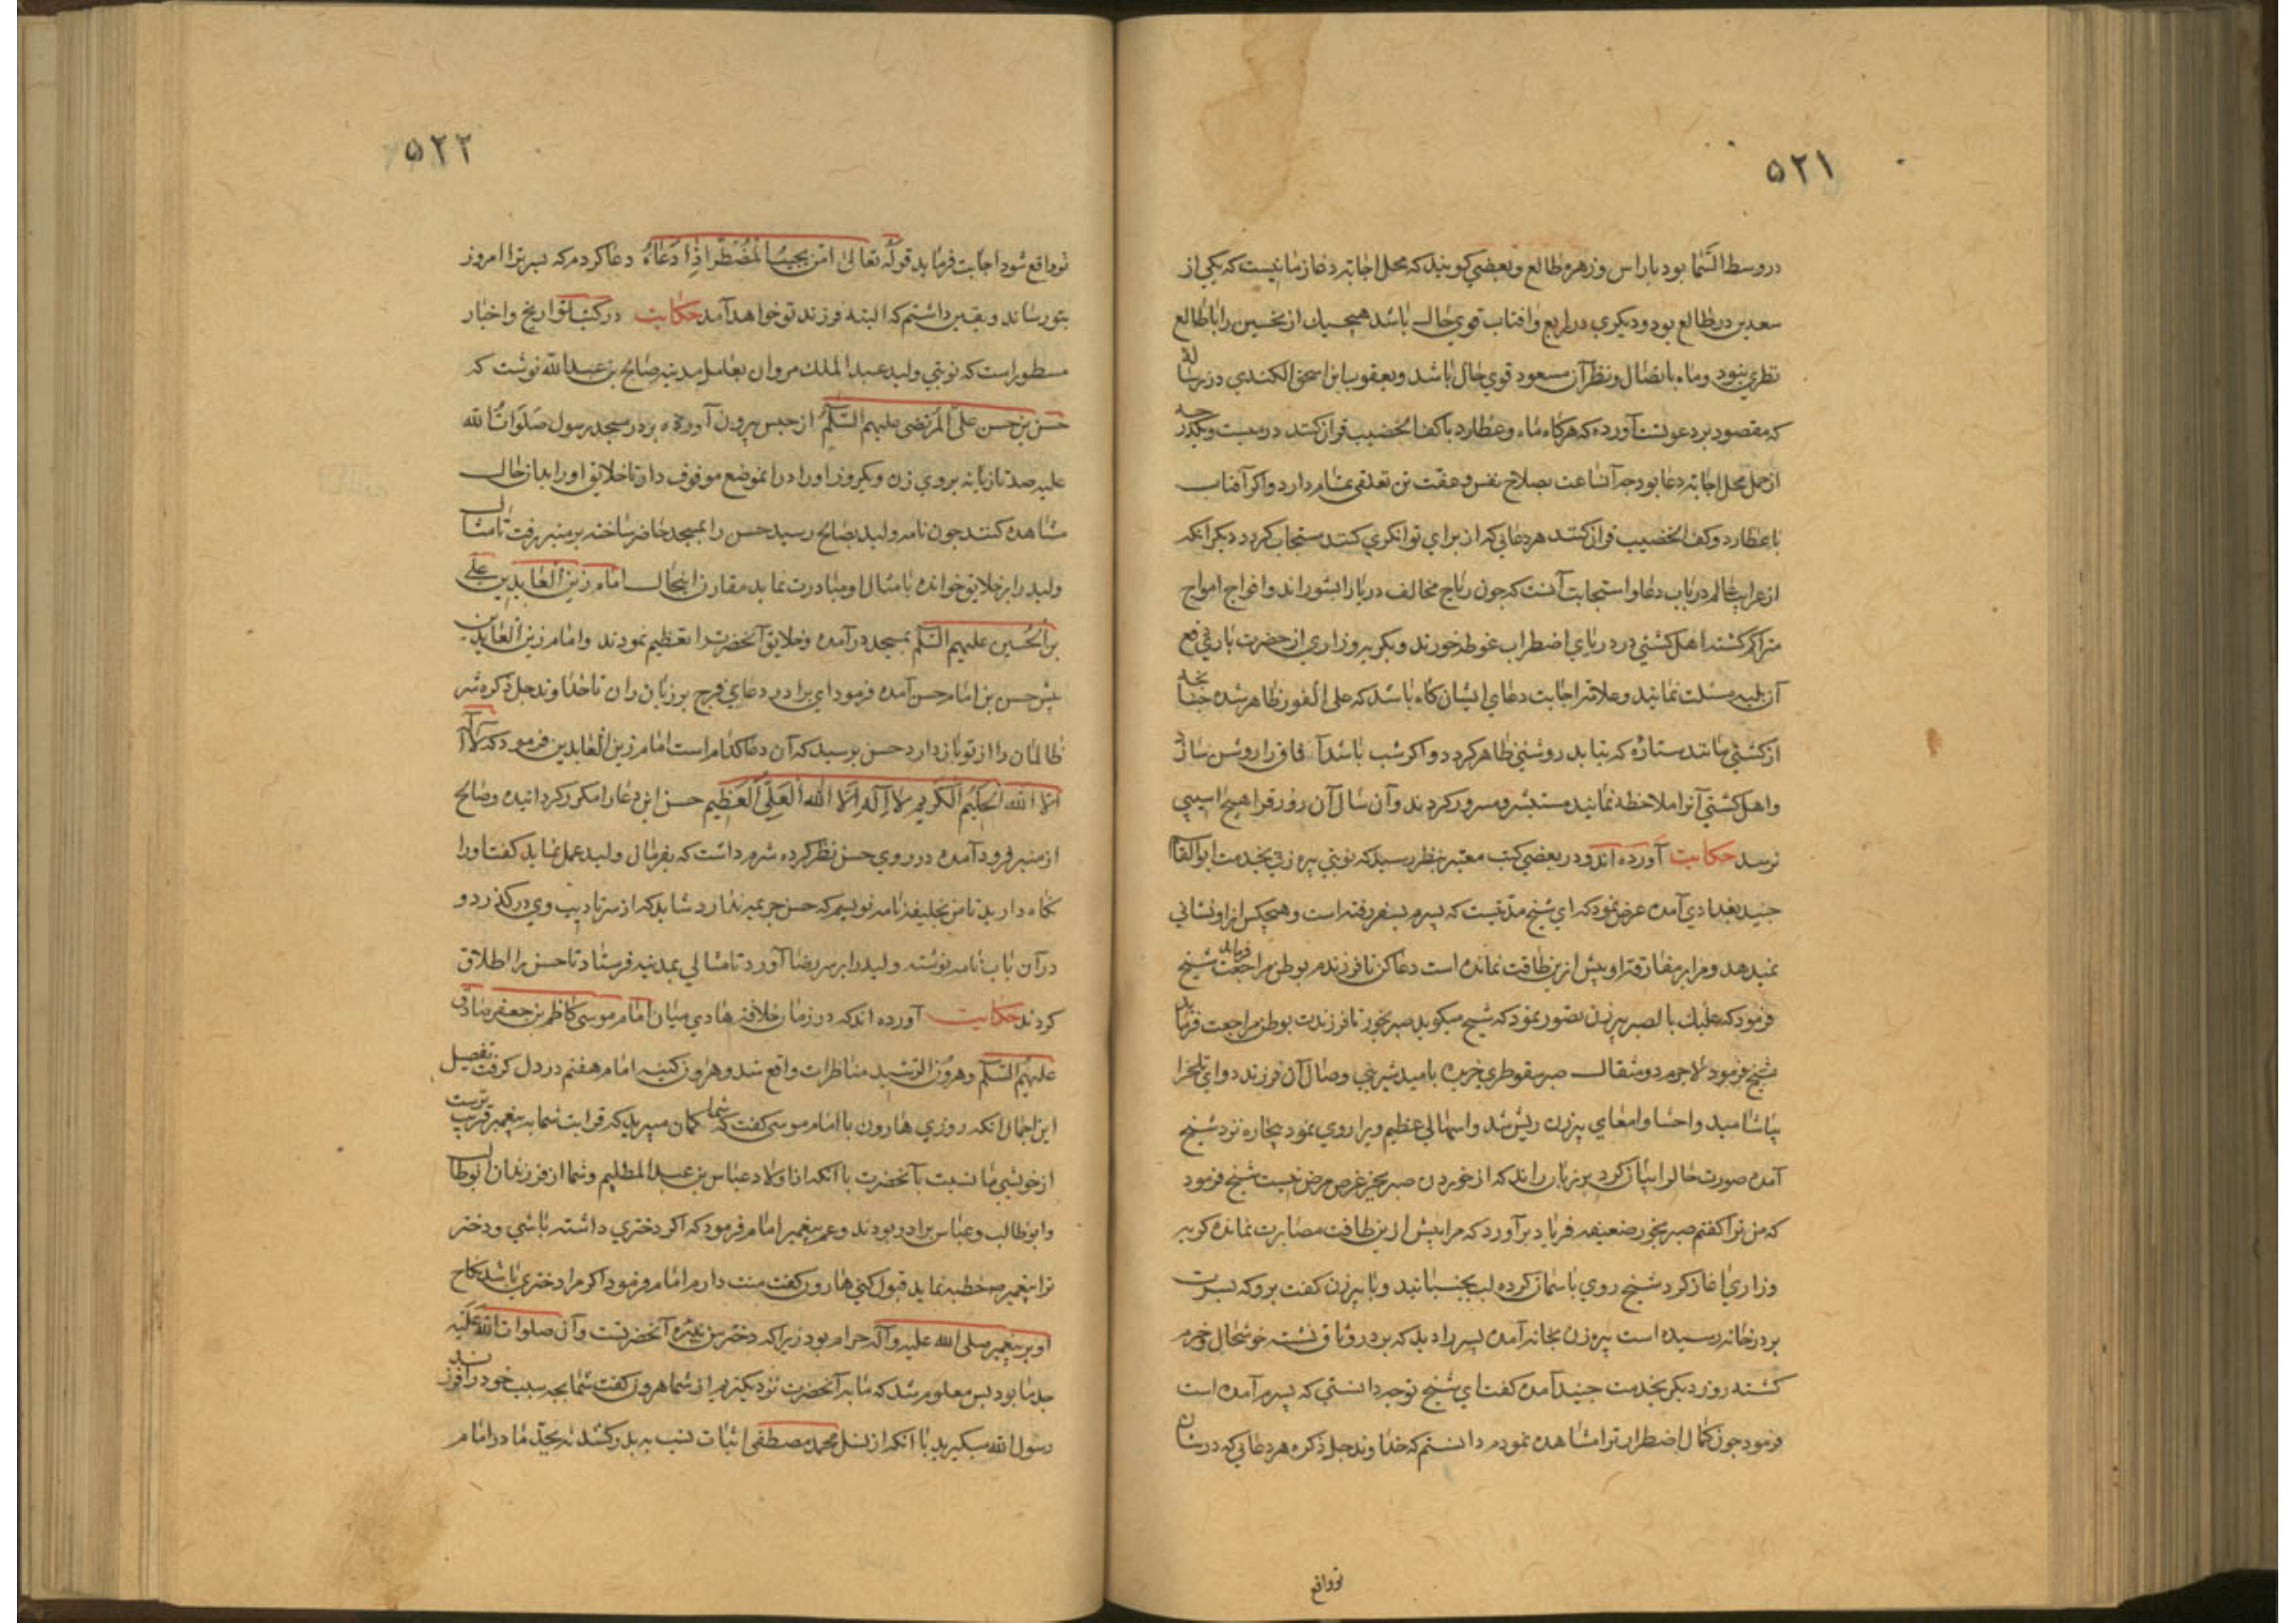 ۵۲۱
در وسط السما بود با راس و زهره طالع و بعضی کویند که محل اجابت دعا زمانیست که یکی از
سعدین در طالع بود و دیکری در رابع و افتاب قوی حال باشد هیچیک از نحسین را با طالع
نظری نبود و ماه باتصال و نظر آن مسعود قوی حال باشد و یعقوب ابن اسحق الکندی در رساله
که مقصود بر دعوتست آورده که هرکاه ماه و عطارد با کف الخضیب قران کنند در بیست و یکدرجه
از حمل محل اجابت دعا بود چه آنساعت بصلاح نفس و عفت تن تعلقی تمام دارد و اکر آفتاب
با عطارد و کف الخضیب قران کنند هر دعایی که از برای توانکری کنند مستجاب کردد دیکر انکه
از غرایب عالم در باب دعا و استجابت آنست که چون ریاح مخالف دریا را بشوراند و افواج امواج
متراکم کشته اهل کشتی در دریای اضطراب غوطه خورند و بکریه و زاری از حضرت باری رفع
آن بلیه مسئلت نمایند و علامت اجابت دعای ایشان کاه باشد که علی الفور ظاهر شده چنانچه
از کشتی مانند ستاره که بتابد روشنی ظاهر کردد و اکر شب باشد آفاق را روشن سازد
و اهل کشتی آنرا ملاحظه نمایند مستبشر و مسرور کردند و آن سال آن زورق را هیچ اسیبی
نرسد حکایت آورده اند و در بعضی کتب معتبر بنظر رسید که نوبتی پیره زنی بخدمت ابو القا
جنید بغدادی آمده عرض نمود که ای شیخ مدتیست که پسرم بسفر رفته است و هیچکس از او نشانی
نمیدهد و مرا بر مفارقت او بیش ازین طاقت نمانده است دعا کن تا فرزندم بوطن مراجعت فرماید شیخ
فرمود که علیک بالصبر پیرزن تصور نمود که شیخ میکوید صبر بخور تا فرزندت بوطن مراجعت فرماید
شیخ فرمود لاجرم دو مثقال صبر سقوطری خریده بامید شیرینی وصال آن فرزند دوای تلخ را
بیاشامید و احشا و امعای پیرزن ریش شد و اسهالی عظیم ویرا روی نمود بیچاره نزد شیخ
آمده صورت حال را بیان کرد بر زبان راند که از خوردن صبر بجز عرض مرض نیست شیخ فرمود
که من ترا کفتم صبر بخور ضعیفه فریاد برآورد که مرا بیش ازین طاقت مصابرت نمانده کریه
و زاری آغاز کرد شیخ روی باسمان کرده لب بجنبانید و با پیرزن کفت برو که پسرت
بر در خانه رسیده است پیره زن بخانه آمده پسر را دید که بر در وثاق نشسته خوشحال و خرم
کشتند روز دیکر بخدمت جنید آمده کفت ای شیخ تو چه دانستی که پسرم آمده است
فرمود چون کمال اضطرار ترا مشاهده نمودم دانستم که خداوند جل ذکره هر دعایی که در شان
تو واقع
۵۲۲
تو واقع شود اجابت فرماید قوله تعالی امن یجیب المضطر اذا دعاه دعا کردم که پسر ترا امروز
بتو رساند و یقین داشتم که البته فرزند تو خواهد آمد حکایت در کتب تواریخ و اخبار
مسطور است که نوبتی ولید عبد الملک مروان بعامل مدینه صالح بن عبد الله نوشت که
حسن بن حسن علی المرتضی علیهم السلم از حبس بیرون آورده بر در مسجد رسول صلوات الله
علیه صد تازیانه بر وی زن و یکروز او را در انموضع موقوف دار تا خلایق او را بدان حال
مشاهده کنند چون نامه ولید بصالح رسید حسن را بمسجد حاضر ساخته بر منبر رفت تا مثال
ولید را بر خلایق خوانده بامثال او مبادرت نماید مقارن اینحال امام زین العابدین علی
بن الحسین علیهم السلم بمسجد در آمده و خلایق آنحضرت را تعظیم نمودند و امام زین العابدین
پیش حسن بن امام حسن آمده فرمود ای برادر دعای فرج بر زبان ران تا خداوند جل ذکره شر
ظالمان را از تو باز دارد حسن پرسید که آن دعا کدام است امام زین العابدین فرمود که لا اله
الا الله الحلیم الکریم لا اله الا الله العلی العظیم حسن این دعا را مکرر کردانیده و صالح
از منبر فرود آمده در روی حسن نظر کرده شرم داشت که بفرمان ولید عمل نماید کفت او را
نکاه دارید تا من بخلیفه نامه نویسم که حسن جریمه ندارد شاید که از سر تادیب وی در کذرد و
در آن باب نامه نوشته ولید را بر سر رضا آورد تا مثالی بمدینه فرستاد تا حسن را اطلاق
کردند حکایت آورده اند که در زمان خلافت هادی میان امام موسی کاظم بن جعفر صادق
علیهم السلم و هرون الرشید مناظرات واقع شد و هرون کینه امام هفتم در دل کرفت تفصیل
این اجمال انکه روزی هارون با امام موسی کفت که شما کمان میبرید که قرابت شما به پیغمبر قریب ترست
از خویشی ما نسبت بآنحضرت با انکه انا ولاد عباس بن عبد المطلبیم و شما از فرزندان ابو طالب
و ابو طالب و عباس برادر بودند و عم پیغمبر امام فرمود که اکر دختری داشته باشی و دختر
ترا پیغمبر خطبه نماید قبول کنی هارون کفت منت دارم امام فرمود اکر مرا دختری باشد نکاح
او بر پیغمبر صلی الله علیه و آله حرام بود زیرا که دختر من نبیره آنحضرتست و آن صلوات الله علیه
جد ما بود پس معلوم شد که ما به آنحضرت نزدیکتریم از شما هرون کفت شما بچه سبب خود را فرزند
رسول الله میکیرید با انکه از نسل محمد مصطفی اثبات نسب به پدر کشد نه بجد مادر امام